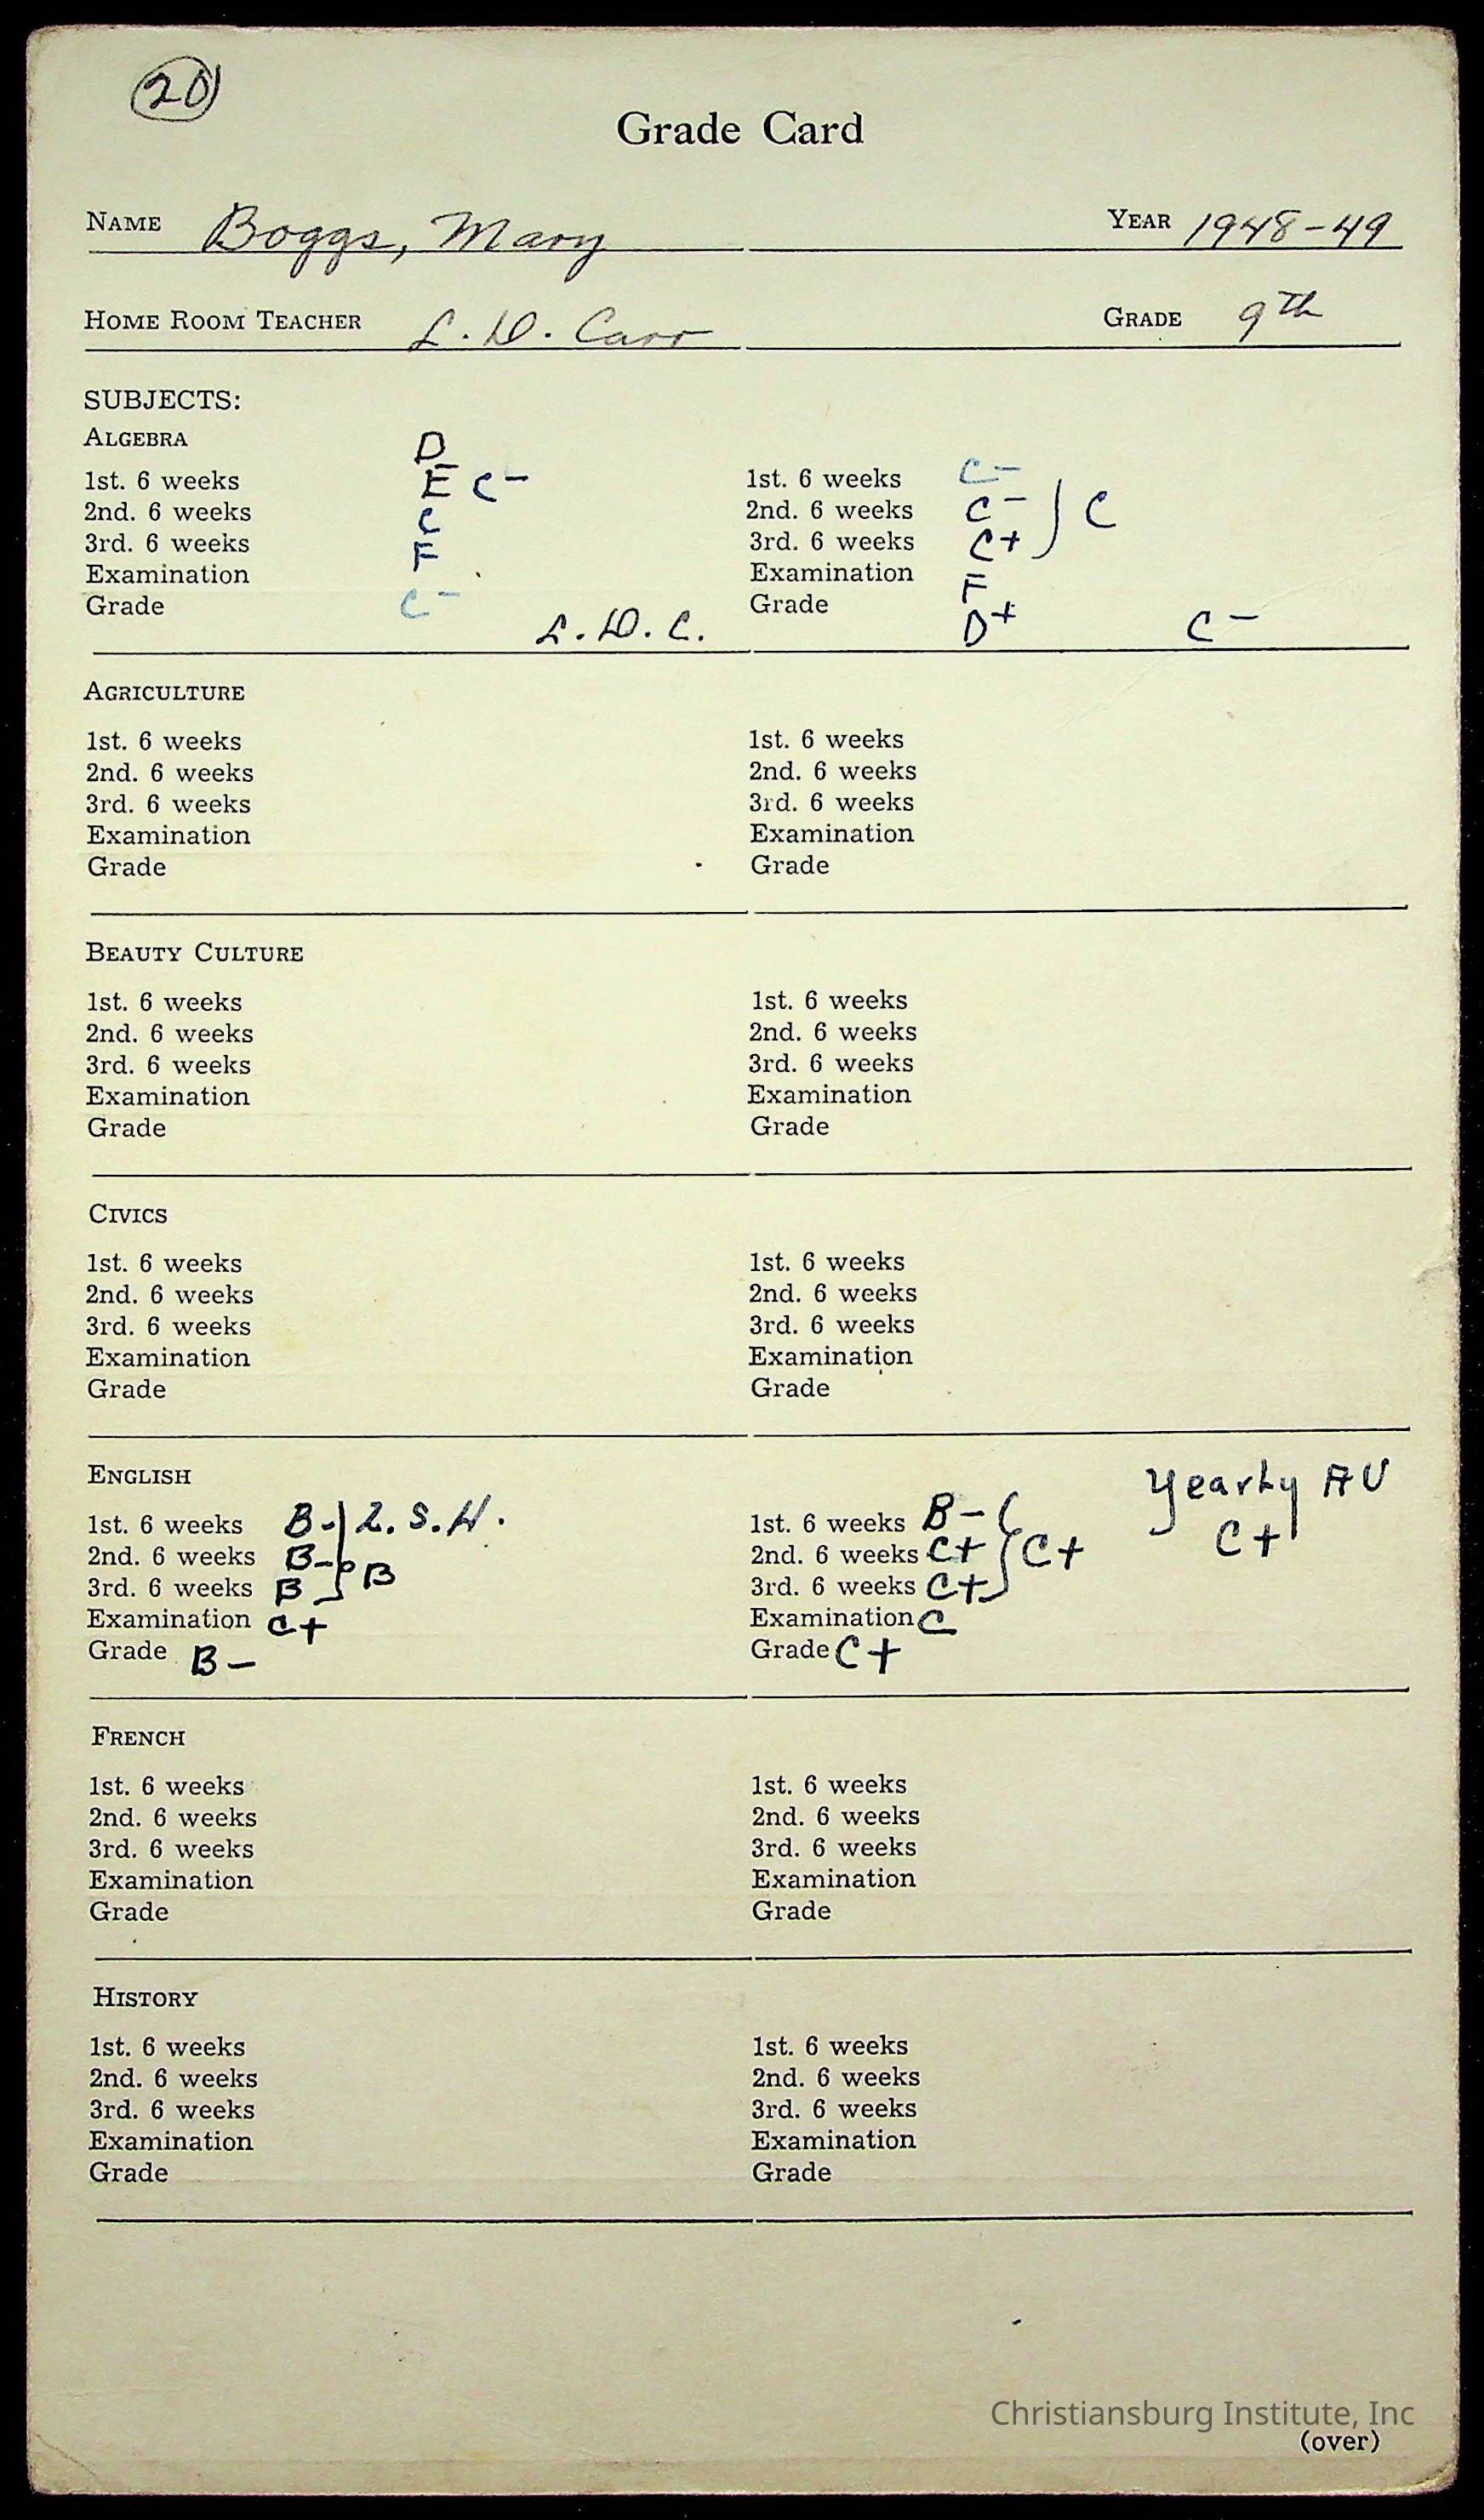 20
Grade Card
NAME Boggs, Mary YEAR 1948-49
HOME ROOM TEACHER L. D. Carr GRADE 9th
SUBJECTS:
ALGEBRA D
1st. 6 weeks E C- 1st. 6 weeks C-
2nd. 6 weeks C 2nd. 6 weeks C- C
3rd. 6 weeks F 3rd. 6 weeks C+
Examination Examination F
Grade C- Grade D+ C-
L. D. C.
AGRICULTURE
1st. 6 weeks 1st. 6 weeks
2nd. 6 weeks 2nd. 6 weeks
3rd. 6 weeks 3rd. 6 weeks
Examination Examination
Grade Grade
BEAUTY CULTURE
1st. 6 weeks 1st. 6 weeks
2nd. 6 weeks 2nd. 6 weeks
3rd. 6 weeks 3rd. 6 weeks
Examination Examination
Grade Grade
CIVICS
1st. 6 weeks 1st. 6 weeks
2nd. 6 weeks 2nd. 6 weeks
3rd. 6 weeks 3rd. 6 weeks
Examination Examination
Grade Grade
ENGLISH Yearly AV
1st. 6 weeks B- Z. S. H. 1st. 6 weeks B- C+
2nd. 6 weeks B- B 2nd. 6 weeks C+ C+
3rd. 6 weeks B 3rd. 6 weeks C+
Examination C+ Examination C
Grade B- Grade C+
FRENCH
1st. 6 weeks 1st. 6 weeks
2nd. 6 weeks 2nd. 6 weeks
3rd. 6 weeks 3rd. 6 weeks
Examination Examination
Grade Grade
HISTORY
1st. 6 weeks 1st. 6 weeks
2nd. 6 weeks 2nd. 6 weeks
3rd. 6 weeks 3rd. 6 weeks
Examination Examination
Grade Grade
Christiansburg Institute, Inc
(over)